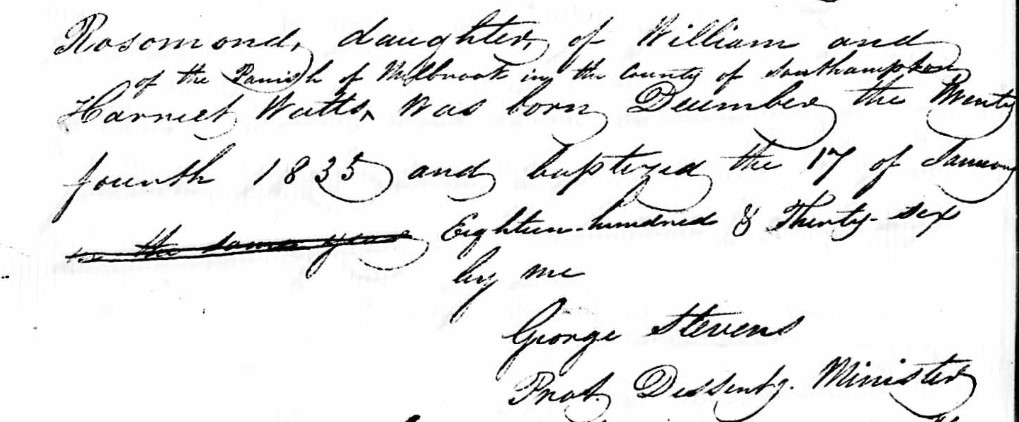 Rosomond, daughter, of William and
of the Parish of Milbrook in the County of Southampton
Harriet Watts, ‸ was born December the Twenty
fourth 1835 and baptized the 17 of January
in the same year Eighteen-hundred & Thirty-six
by me
George Stevens
Prot. Dissentg. Minister